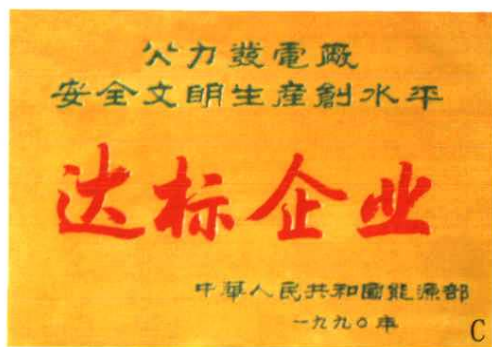 火力發電厰
安全文明生産創水平
达标企业
中華人民共和國能源部
一九九〇年
C